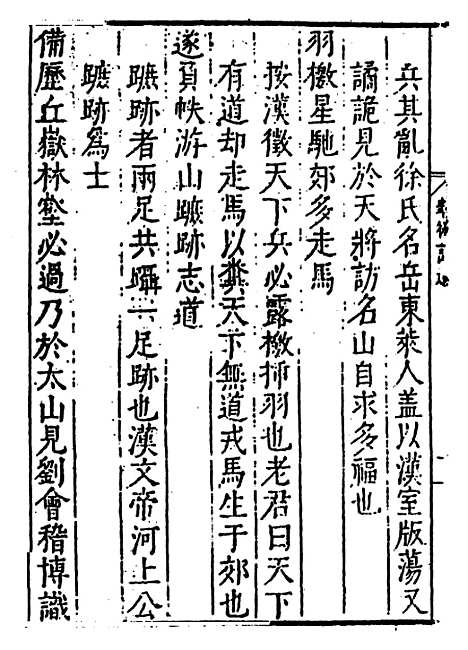 兵其亂徐氏名岳東萊人盖以漢室版蕩又
譎詭見於天將訪名山自求多福也
羽檄星馳郊多走馬
按漢徵天下兵必露檄揷羽也老君曰天下
有道却走馬以糞天下無道戎馬生于郊也
遂負帙游山蹠跡志道
蹠跡者兩足共躡一足跡也漢文帝河上公
蹠跡爲士
備歷丘嶽林壑必過乃於太山見劉會稽博識